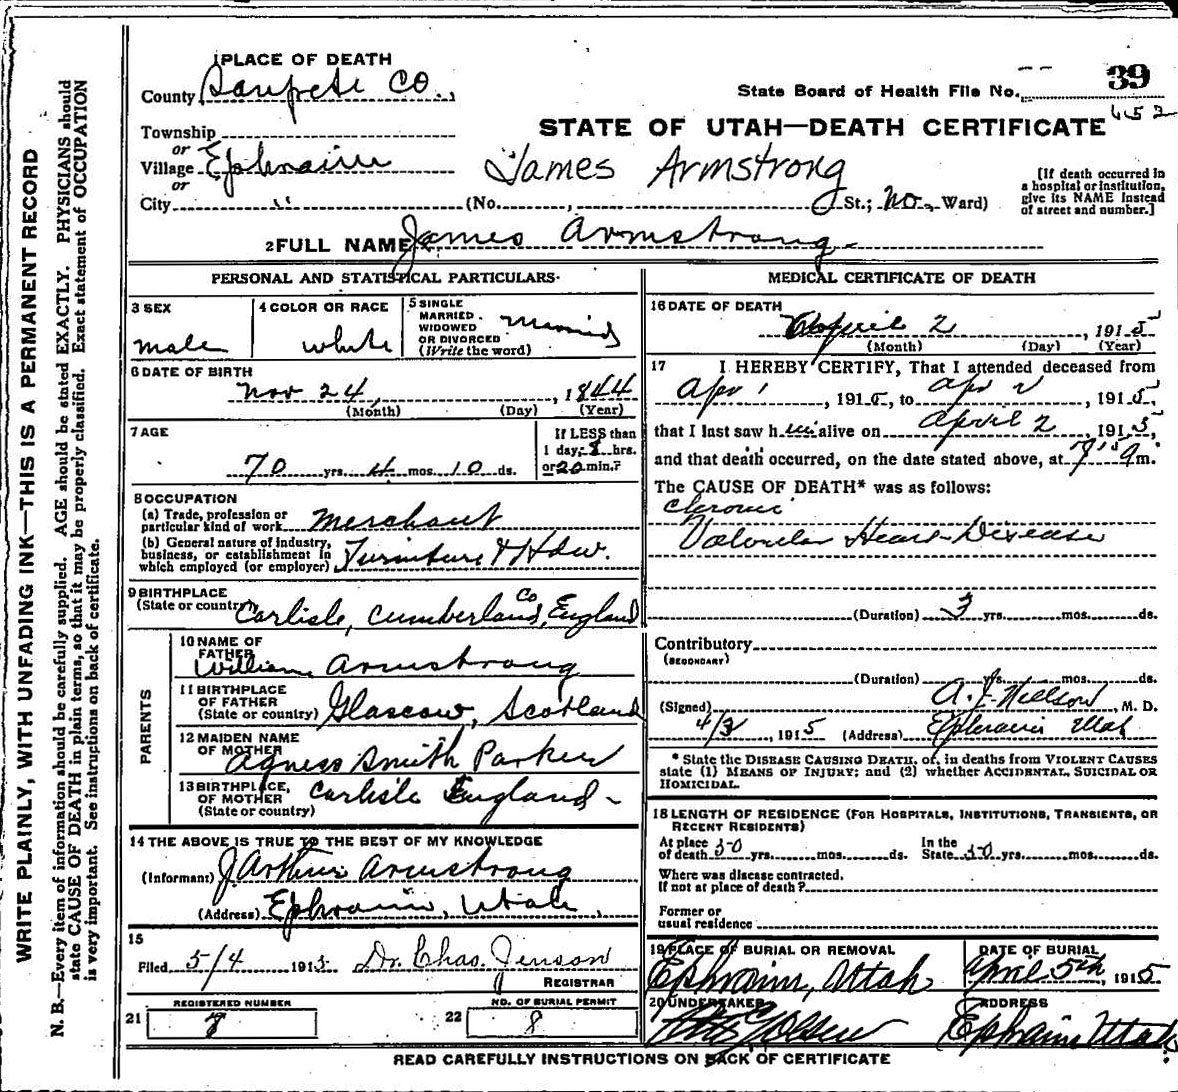 WRITE PLAINLY, WITH UNFADING INK—THIS IS A PERMANENT RECORD
N. B.—Every item of information should be carefully supplied. AGE should be stated EXACTLY. PHYSICIANS should
state CAUSE OF DEATH in plain terms, so that it may be properly classified. Exact statement of OCCUPATION
is very important. See instructions on back of certificate.
1 PLACE OF DEATH
County Sanpete Co.,
State Board of Health File No. 39
452
STATE OF UTAH—DEATH CERTIFICATE
Township
or
Village Ephraim
or
City " (No. , St.; No. Ward)
James Armstrong
[If death occurred in
a hospital or institution,
give its NAME instead
of street and number.]
2 FULL NAME James Armstrong.
PERSONAL AND STATISTICAL PARTICULARS
3 SEX
male
4 COLOR OR RACE
white
5 SINGLE
MARRIED
WIDOWED
OR DIVORCED
(Write the word)
Married
6 DATE OF BIRTH
Nov 24, 1844
(Month) (Day) (Year)
7 AGE
70 yrs. 4 mos. 10 ds.
If LESS than
1 day, hrs.
or 20 min.?
8 OCCUPATION
(a) Trade, profession or
particular kind of work Merchant
(b) General nature of industry,
business, or establishment in
which employed (or employer) Furniture & Hdw.
9 BIRTHPLACE
(State or country) Carlisle, Cumberland Co, England
PARENTS
10 NAME OF
FATHER
William Armstrong
11 BIRTHPLACE
OF FATHER
(State or country) Glascow, Scotland
12 MAIDEN NAME
OF MOTHER
Agness Smith Parker
13 BIRTHPLACE,
OF MOTHER
(State or country)
Carlisle England
14 THE ABOVE IS TRUE TO THE BEST OF MY KNOWLEDGE
(Informant) J. Arthur Armstrong
(Address) Ephraim, Utah,
15
Filed 5/4 1915 Dr. Chas. Jenson
REGISTRAR
REGISTERED NUMBER
21
NO. OF BURIAL PERMIT
22 8
MEDICAL CERTIFICATE OF DEATH
16 DATE OF DEATH
April 2, 1915
(Month) (Day) (Year)
17 I HEREBY CERTIFY, That I attended deceased from
Apr 1, 1915, to Apr 2, 1915,
that I last saw him alive on April 2, 1915,
and that death occurred, on the date stated above, at m.
The CAUSE OF DEATH* was as follows:
Chronic
Valvular Heart Disease
(Duration) 3 yrs. mos. ds.
Contributory
(SECONDARY)
(Duration) yrs. mos. ds.
(Signed) A. J. Nielson, M. D.
4/3, 1915 (Address) Ephraim Utah
* State the DISEASE CAUSING DEATH, or, in deaths from VIOLENT CAUSES
state (1) MEANS OF INJURY; and (2) whether ACCIDENTAL, SUICIDAL OR
HOMICIDAL.
18 LENGTH OF RESIDENCE (FOR HOSPITALS, INSTITUTIONS, TRANSIENTS, OR
RECENT RESIDENTS)
At place
of death 50 yrs. mos. ds.
In the
State 50 yrs. mos. ds.
Where was disease contracted,
If not at place of death?
Former or
usual residence
19 PLACE OF BURIAL OR REMOVAL
Ephraim, Utah
DATE OF BURIAL
April 5th, 1915
20 UNDERTAKER
ADDRESS
Ephraim Utah.
READ CAREFULLY INSTRUCTIONS ON BACK OF CERTIFICATE